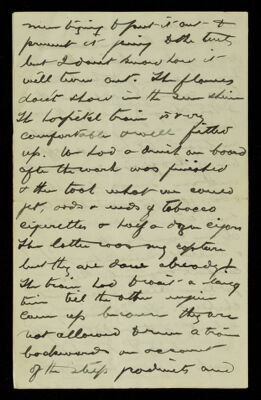 men trying to put it out &
prevent it going to the tents
but I don't know how it
will turn out. The flames
don't show in the sun shine
The hospital train is very
comfortable & well fitted
up. We had a drink on board
after the work was finished
& then took what we could
get, odds & ends of tobacco
cigarettes & half a dozen cigars
The latter was my capture
but they are done already!
The train had to wait a long
time till the other engine
came up because they are
not allowed to run a train
backwards on account
of the steep gradients and